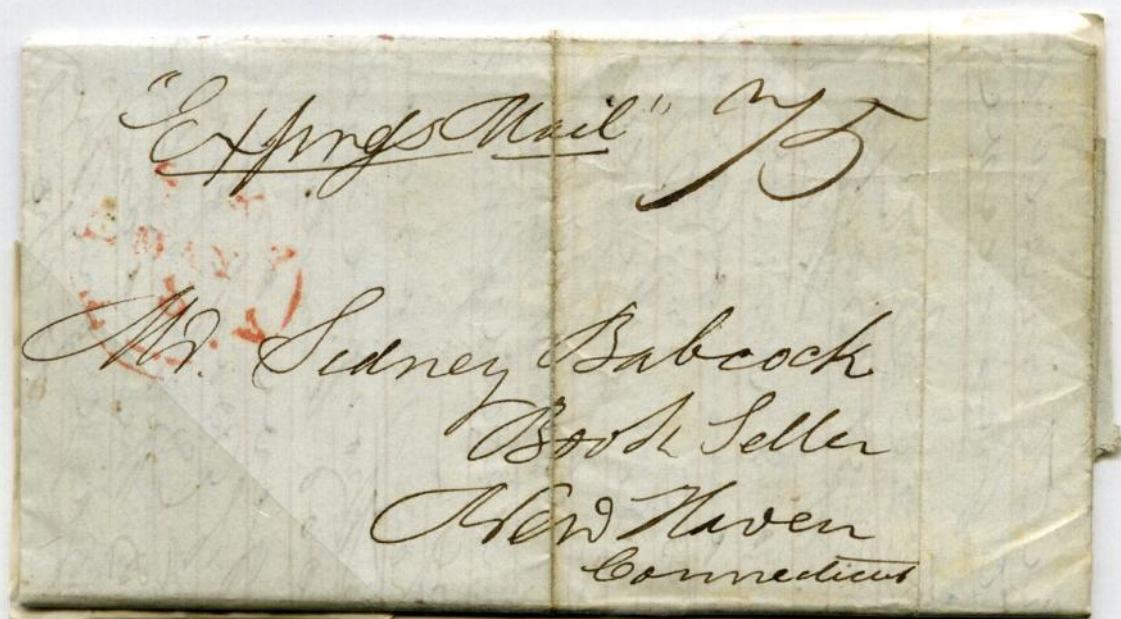 "Express Mail" 75
Mr. Sidney Babcock
Book Seller
New Haven
Connecticut